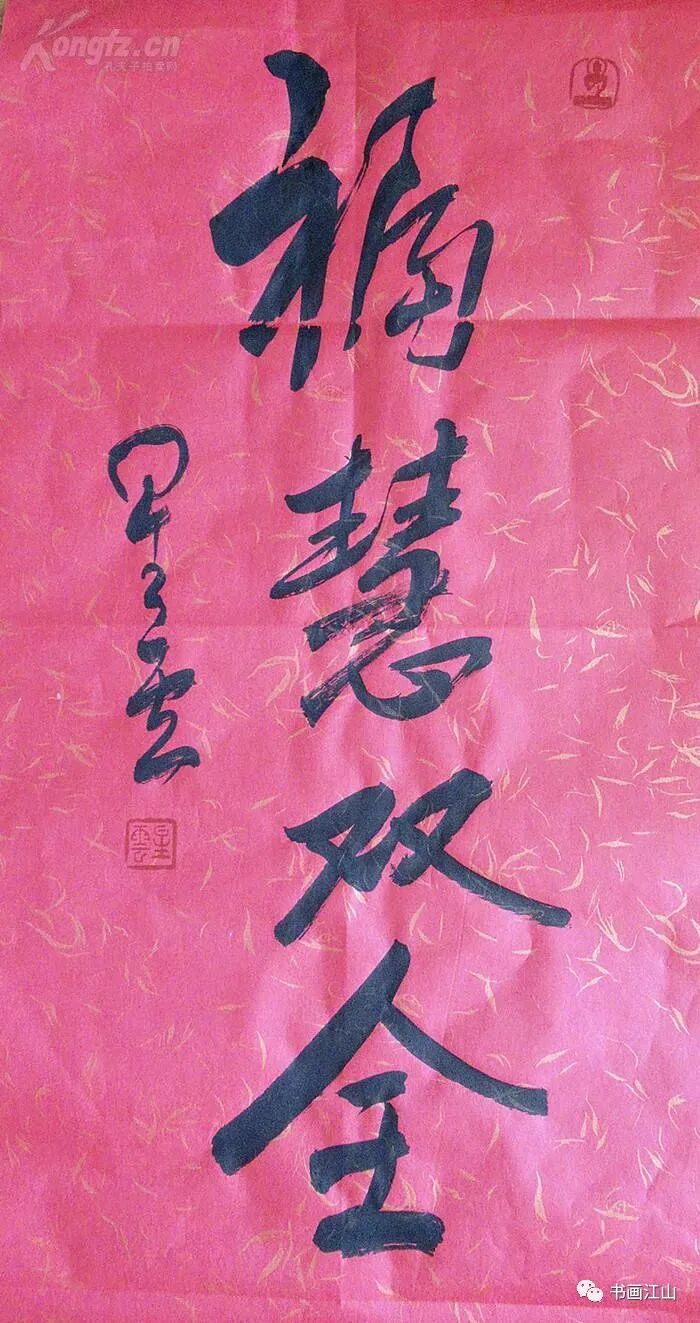 Kongfz.cn
孔夫子拍卖网
福慧双全
星云
星雲
书画江山